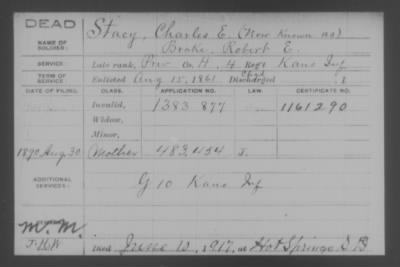 DEAD
NAME OF SOLDIER: Stacy, Charles E. (Now Known as)
Brake, Robert E.
SERVICE: Late rank, Priv Co. H, 4 Reg't Kans Inf
TERM OF SERVICE: Enlisted Aug 15, 1861 Discharged
DATE OF FILING. CLASS. APPLICATION NO. LAW. CERTIFICATE NO.
Invalid, 1383 877 1161290
Widow,
Minor,
1890 Aug 30 Mother 483,454 J.
ADDITIONAL SERVICES: G 10 Kans Inf
M. M.
J.H.W Died June 10, 1917, at Hot Springs S D